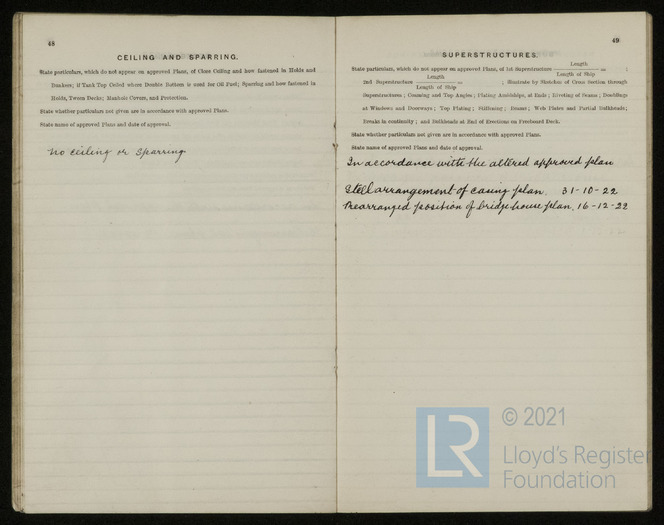 48
CEILING AND SPARRING.
State particulars, which do not appear on approved Plans, of Close Ceiling and how fastened in Holds and
Bunkers; if Tank Top Ceiled where Double Bottom is used for Oil Fuel; Sparring and how fastened in
Holds, Tween Decks; Manhole Covers, and Protection.
State whether particulars not given are in accordance with approved Plans.
State name of approved Plans and date of approval.
No ceiling or Sparring
49
SUPERSTRUCTURES.
State particulars, which do not appear on approved Plans, of 1st Superstructure Length / Length of Ship = ;
2nd Superstructure Length / Length of Ship = ; Illustrate by Sketches of Cross Section through
Superstructures; Coaming and Top Angles; Plating Amidships, at Ends; Riveting of Seams; Doublings
at Windows and Doorways; Top Plating; Stiffening; Beams; Web Plates and Partial Bulkheads;
Breaks in continuity; and Bulkheads at End of Erections on Freeboard Deck.
State whether particulars not given are in accordance with approved Plans.
State name of approved Plans and date of approval.
In accordance with the altered approved plan
Steel arrangement of casing plan. 31-10-22
Rearranged position of bridge house plan. 16-12-22
LR
© 2021
Lloyd's Register
Foundation